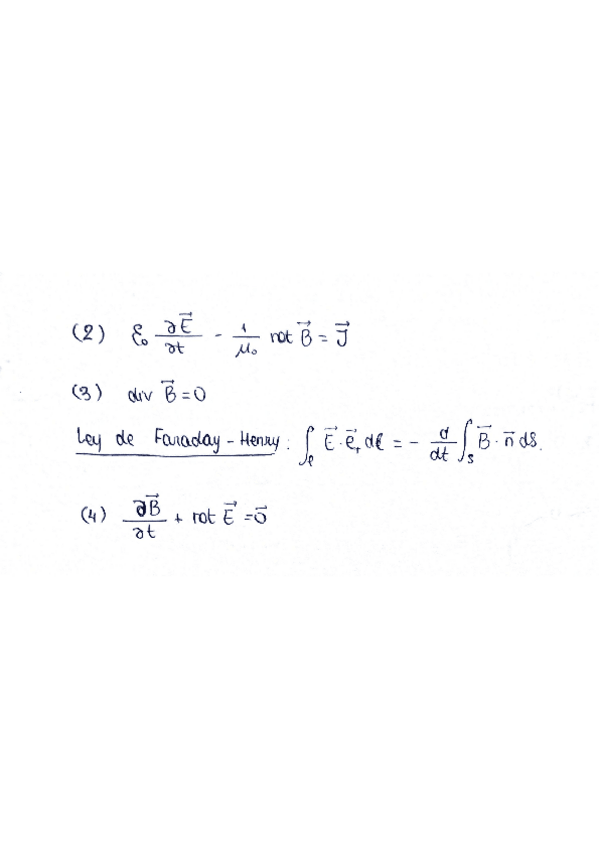 (2) ε₀ ∂E⃗/∂t - 1/μ₀ rot B⃗ = J⃗
(3) div B⃗ = 0
Ley de Faraday - Henry: ∫ₗ E⃗ · e⃗ₜ dl = - d/dt ∫ₛ B⃗ · n⃗ dS.
(4) ∂B⃗/∂t + rot E⃗ = 0⃗